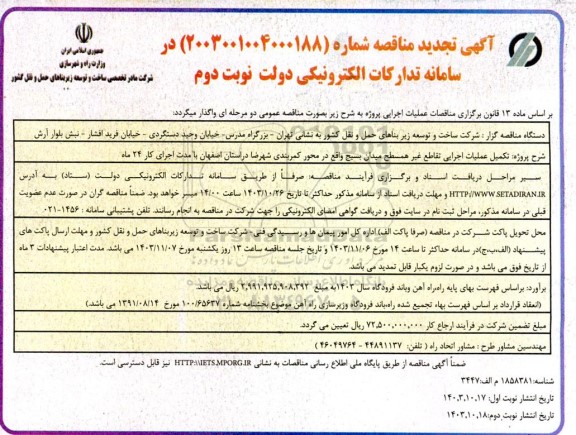 جمهوری اسلامی ایران
وزارت راه و شهرسازی
شرکت مادر تخصصی ساخت و توسعه زیربناهای حمل و نقل کشور
آگهی تجدید مناقصه شماره (۲۰۰۳۰۰۱۰۰۴۰۰۰۱۸۸) در
سامانه تدارکات الکترونیکی دولت نوبت دوم
بر اساس ماده ۱۳ قانون برگزاری مناقصات عملیات اجرایی پروژه به شرح زیر بصورت مناقصه عمومی دو مرحله ای واگذار میگردد:
دستگاه مناقصه گزار : شرکت ساخت و توسعه زیر بناهای حمل و نقل کشور به نشانی تهران - بزرگراه مدرس- خیابان وحید دستگردی - خیابان فرید افشار - نبش بلوار آرش
شرح پروژه: تکمیل عملیات اجرایی تقاطع غیر همسطح میدان بسیج واقع در محور کمربندی شهرضا دراستان اصفهان با مدت اجرای کار ۲۴ ماه
سیر مراحل دریافت اسناد و برگزاری فرآیند مناقصه، صرفاً از طریق سامانه تدارکات الکترونیکی دولت (ستاد) به آدرس
HTTP://WWW.SETADIRAN.IR و مهلت دریافت اسناد از سامانه مذکور حداکثر تا تاریخ ۱۴۰۳/۱۰/۲۶ ساعت ۱۴:۰۰ میسر خواهد بود. ضمناً مناقصه گران در صورت عدم عضویت
قبلی در سامانه مذکور، مراحل ثبت نام در سایت فوق و دریافت گواهی امضای الکترونیکی را جهت شرکت در مناقصه به انجام رسانند. تلفن پشتیبانی سامانه : ۱۴۵۶-۰۲۱
محل تحویل پاکت شرکت در مناقصه (صرفا پاکت الف) اداره کل امور پیمان ها و رسیدگی فنی- شرکت ساخت و توسعه زیربناهای حمل و نقل کشور و مهلت ارسال پاکت های
پیشنهاد (الف،ب،ج)در سامانه حداکثر تا ساعت ۱۴ مورخ ۱۴۰۳/۱۱/۰۶ و تاریخ جلسه مناقصه ساعت ۱۳ روز یکشنبه مورخ ۱۴۰۳/۱۱/۰۷ می باشد. مدت اعتبار پیشنهادات ۳ ماه
از تاریخ فوق می باشد و در صورت لزوم یکبار قابل تمدید می باشد.
برآورد: براساس فهرست بهای پایه راه،راه آهن وباند فرودگاه سال ۱۴۰۳به مبلغ ۲,۹۹۱,۹۲۵,۹۰۸,۳۹۳ ریال می باشد
(انعقاد قرارداد بر اساس فهرست بهاء تجمیع شده راه،باند فرودگاه وزیرسازی راه آهن موضوع بخشنامه شماره ۱۰۰/۶۵۶۳۷ مورخ ۱۳۹۱/۰۸/۱۴ می باشد.)
مبلغ تضمین شرکت در فرآیند ارجاع کار ۷۲,۵۰۰,۰۰۰,۰۰۰ ریال تعیین می گردد.
مهندسین مشاور طرح : مشاور اتحاد راه ( تلفن: ۴۴۸۹۱۱۳۷ - ۴۶۰۴۹۷۶۴ )
ضمناً آگهی مناقصه از طریق پایگاه ملی اطلاع رسانی مناقصات به نشانی HTTP:\\IETS.MPORG.IR نیز قابل دسترسی است.
شناسه: ۱۸۵۸۳۸۱ م الف:۳۴۴۷
تاریخ انتشار نوبت اول: ۱۴۰۳,۱۰,۱۷
تاریخ انتشار نوبت دوم:۱۴۰۳,۱۰,۱۸